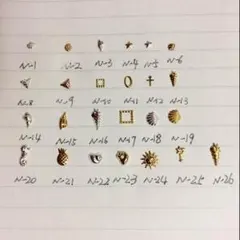 N-1 N-2 N-3 N-4 N-5 N-6
N-8 N-9 N-10 N-11 N-12 N-13
N-14 N-15 N-16 N-17 N-18 N-19
N-20 N-21 N-22 N-23 N-24 N-25 N-26